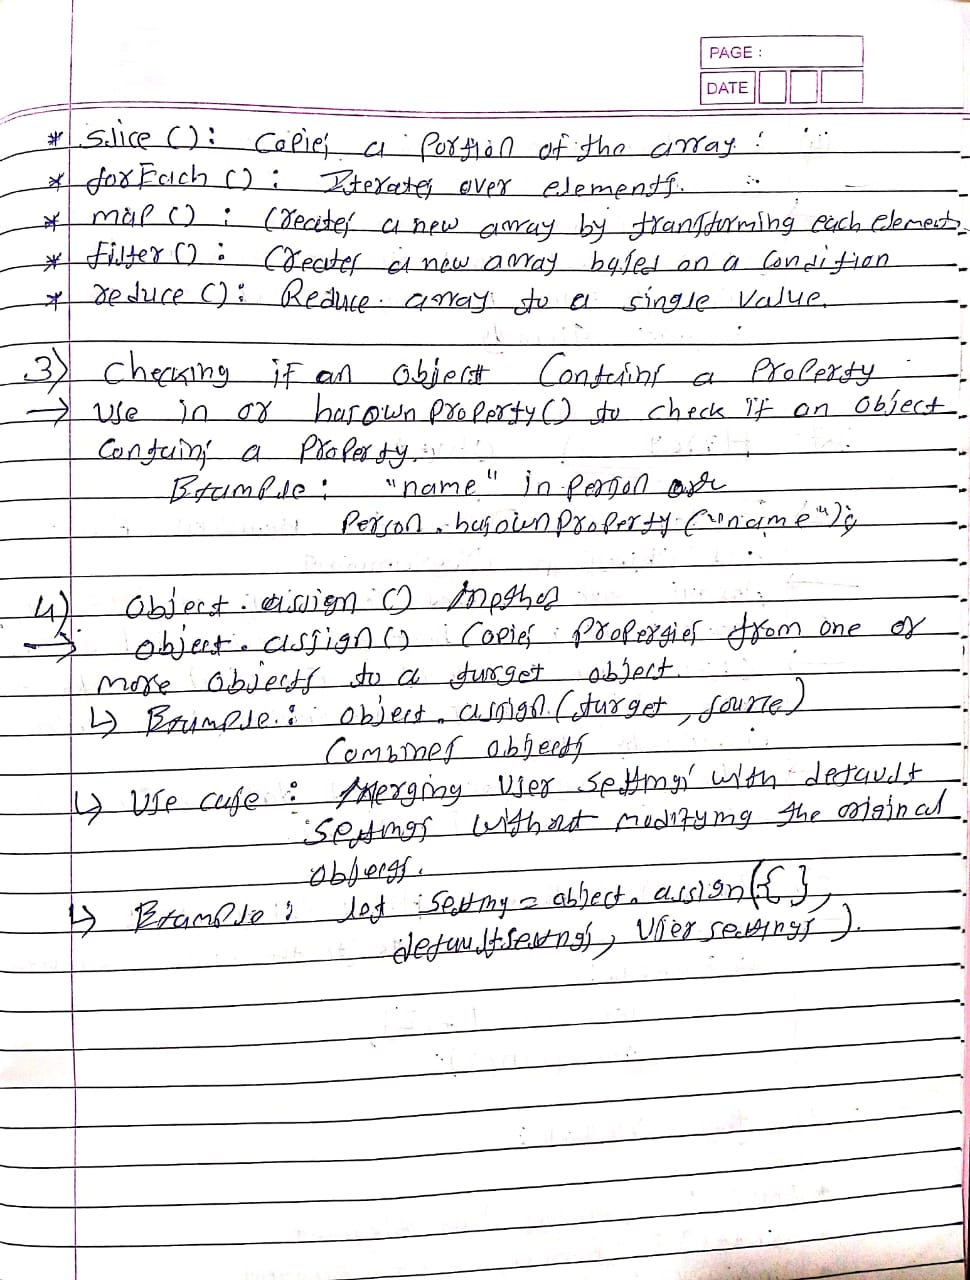 PAGE :
DATE
* slice () : Copies a Portion of the array.
* forEach () : Iterates over elements.
* map () : Creates a new array by transforming each element.
* filter () : Creates a new array based on a condition
* reduce () : Reduce array to a single value.
3) Checking if an Object Contains a Property
→ Use in or hasownProperty() to check if an Object
Contains a Property.
Example : "name" in person or
Person.hasownProperty("name");
4) Object.assign () Method
→ object.assign() Copies Properties from one or
more objects to a target object.
↳ Example : object.assign(target, source)
Combines objects
↳ Use case : Merging User settings with default
settings without modifying the original
objects.
↳ Example : let setting = object.assign({},
defaultsettings, User settings).